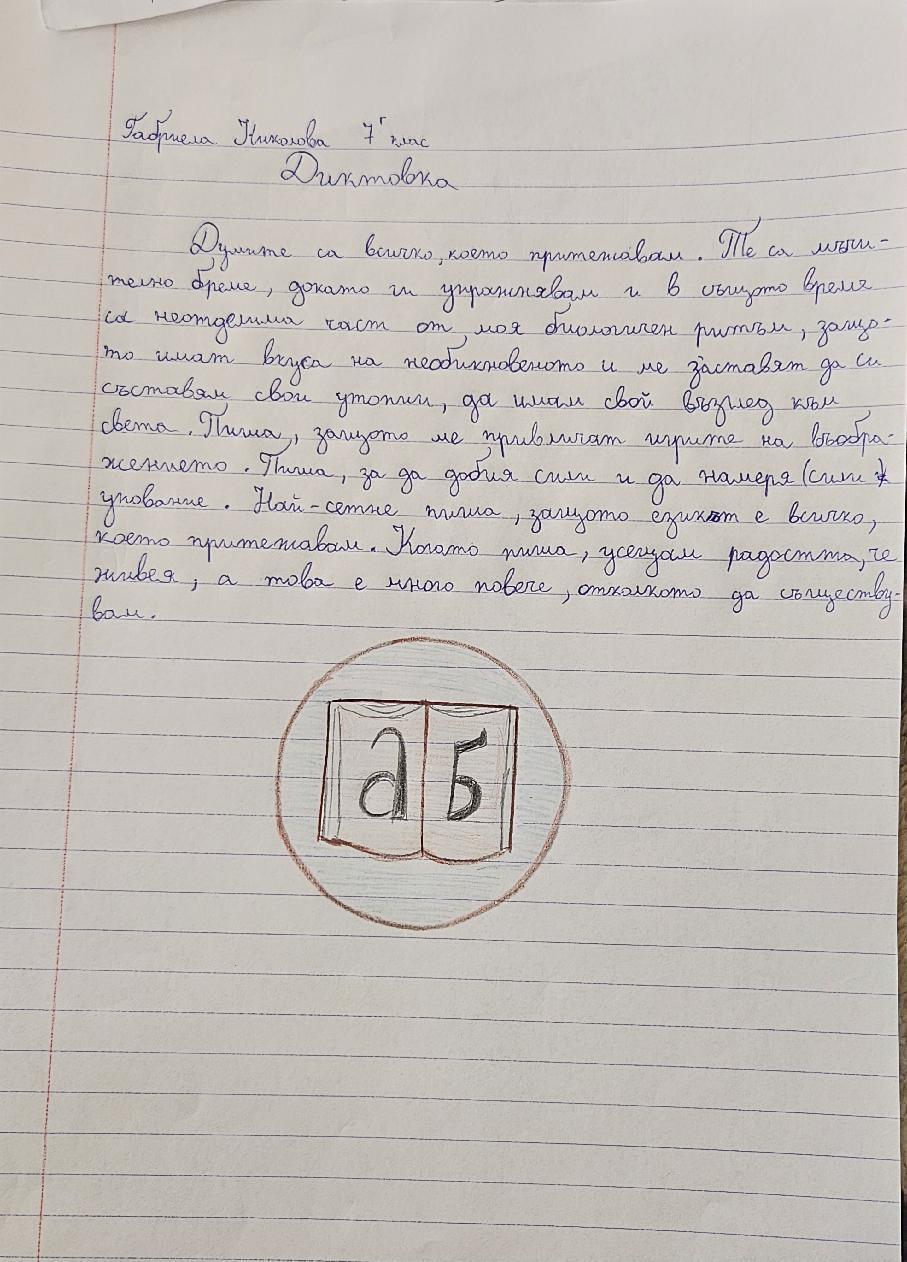 Габриела Николова 7г клас
Диктовка
Думите са всичко, което притежавам. Те са мъчи-
телно бреме, докато ги упражнявам и в същото време
са неотделима част от моя биологичен ритъм, защо-
то имат вкуса на необикновеното и ме заставят да си
съставям свои утопии, да имам свой възглед към
света. Пиша, защото ме привличат игрите на въобра-
жението. Пиша, за да добия сили и да намеря (сили
упование. Най-сетне пиша, защото езикът е всичко,
което притежавам. Когато пиша, усещам радостта, че
живея, а това е много повече, отколкото да съществу-
вам.
а б